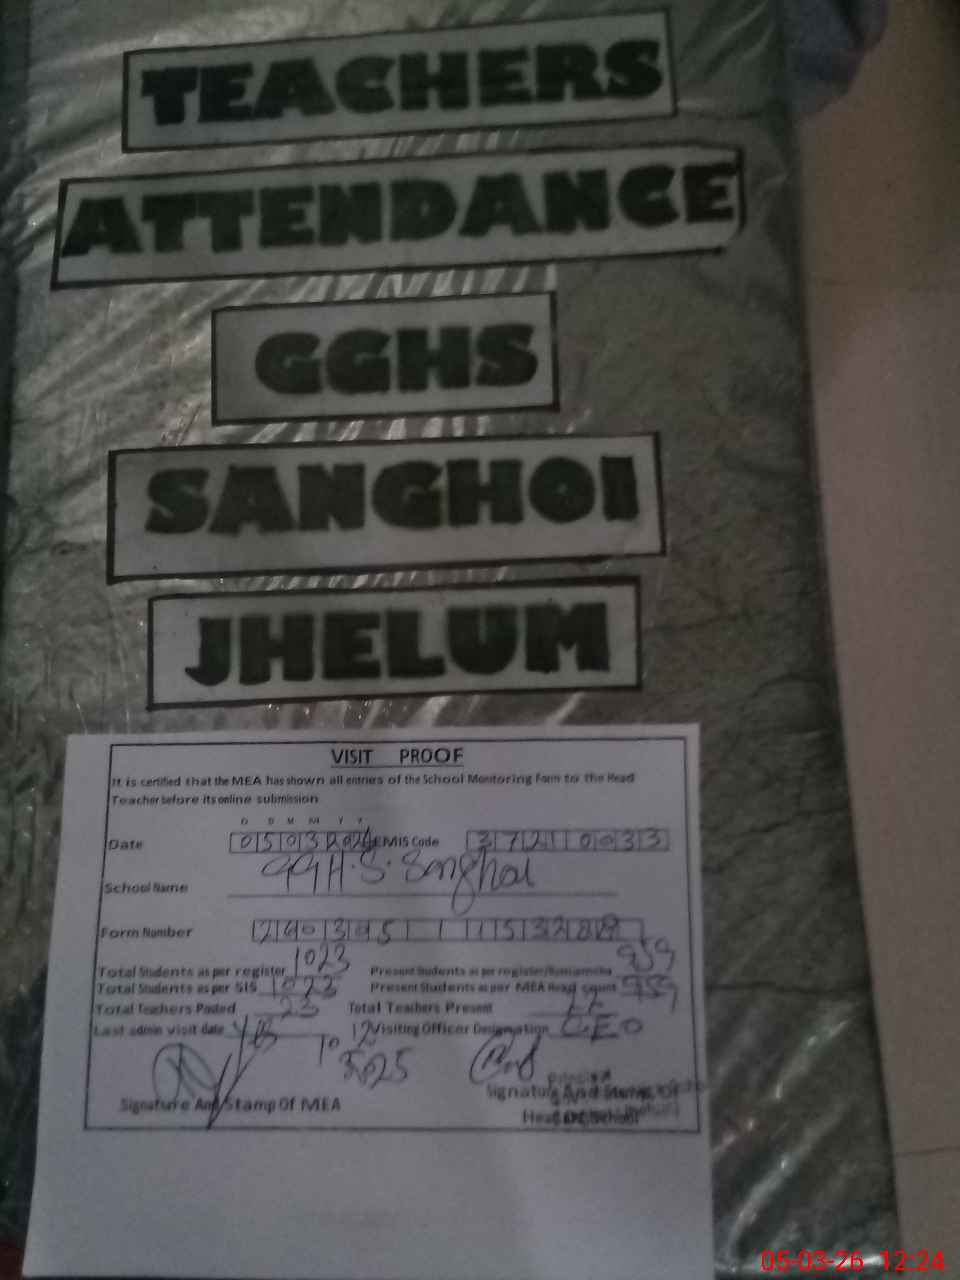 TEACHERS
ATTENDANCE
GGHS
SANGHOI
JHELUM
VISIT PROOF
It is certified that the MEA has shown all entries of the School Monitoring Form to the Head
Teacher before its online submission
D D M M Y Y
Date 05032026 EMIS Code 37210033
School Name GGH.S. Sanghoi
Form Number
Total Students as per register 1023 Present Students as per register 959
Total Students as per SIS 1023 Present Students as per MEA Head count 959
Total Teachers Posted 23 Total Teachers Present
Last admin visit date Visiting Officer Designation CEO
Signature And Stamp Of MEA
Signature And Stamp Of
Head Of School
05-03-26 12:24